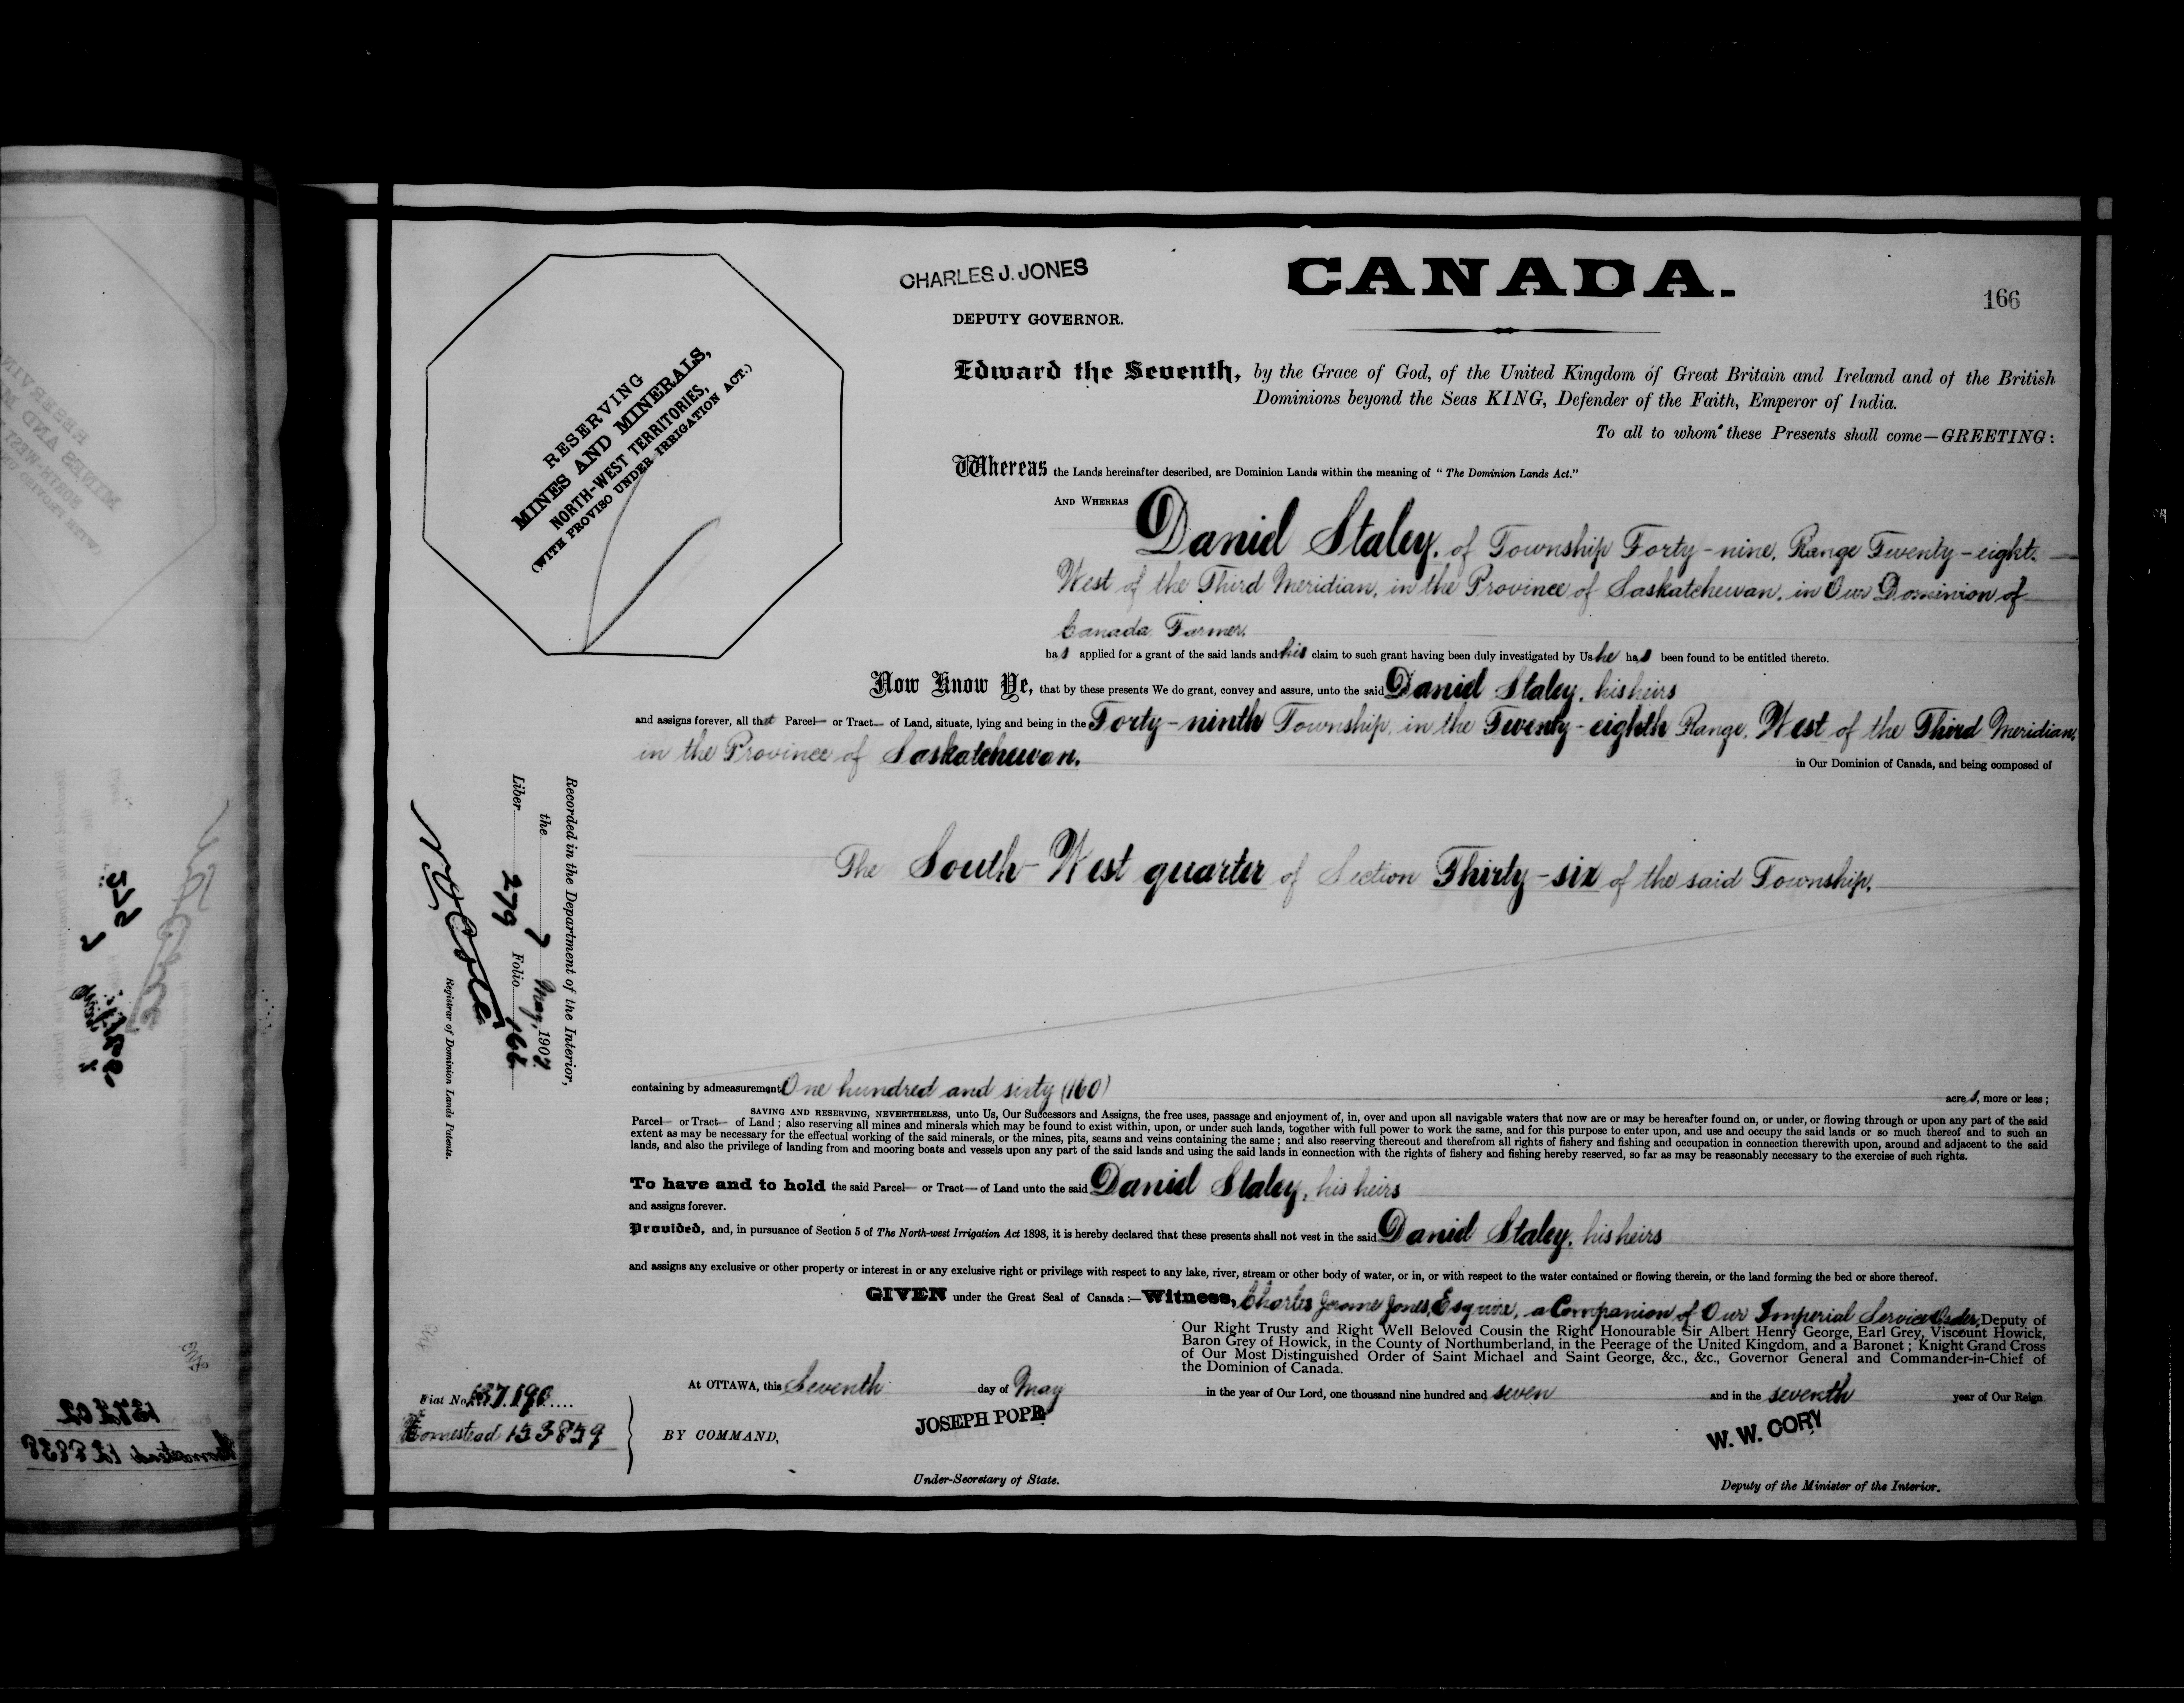 CHARLES J. JONES
CANADA.
166
DEPUTY GOVERNOR.
RESERVING
MINES AND MINERALS,
NORTH-WEST TERRITORIES,
(WITH PROVISO UNDER IRRIGATION ACT.)
Edward the Seventh, by the Grace of God, of the United Kingdom of Great Britain and Ireland and of the British
Dominions beyond the Seas KING, Defender of the Faith, Emperor of India.
To all to whom these Presents shall come—GREETING:
Whereas the Lands hereinafter described, are Dominion Lands within the meaning of "The Dominion Lands Act."
AND WHEREAS Daniel Staley, of Township Forty-nine, Range Twenty-eight
West of the Third Meridian, in the Province of Saskatchewan, in Our Dominion of
Canada Farmer,
has applied for a grant of the said lands and his claim to such grant having been duly investigated by Us he has been found to be entitled thereto.
Now Know Ye, that by these presents We do grant, convey and assure, unto the said Daniel Staley, his heirs
and assigns forever, all that Parcel— or Tract— of Land, situate, lying and being in the Forty-ninth Township, in the Twenty-eighth Range, West of the Third Meridian,
in the Province of Saskatchewan. in Our Dominion of Canada, and being composed of
The South-West quarter of Section Thirty-six of the said Township.
Recorded in the Department of the Interior,
the 7 May, 1907
Liber 279 Folio 166
Registrar of Dominion Lands Patents.
containing by admeasurement One hundred and sixty (160) acres, more or less;
SAVING AND RESERVING, NEVERTHELESS, unto Us, Our Successors and Assigns, the free uses, passage and enjoyment of, in, over and upon all navigable waters that now are or may be hereafter found on, or under, or flowing through or upon any part of the said
Parcel— or Tract— of Land; also reserving all mines and minerals which may be found to exist within, upon, or under such lands, together with full power to work the same, and for this purpose to enter upon, and use and occupy the said lands or so much thereof and to such an
extent as may be necessary for the effectual working of the said minerals, or the mines, pits, seams and veins containing the same; and also reserving thereout and therefrom all rights of fishery and fishing and occupation in connection therewith upon, around and adjacent to the said
lands, and also the privilege of landing from and mooring boats and vessels upon any part of the said lands and using the said lands in connection with the rights of fishery and fishing hereby reserved, so far as may be reasonably necessary to the exercise of such rights.
To have and to hold the said Parcel— or Tract— of Land unto the said Daniel Staley, his heirs
and assigns forever.
Provided, and, in pursuance of Section 5 of The North-west Irrigation Act 1898, it is hereby declared that these presents shall not vest in the said Daniel Staley, his heirs
and assigns any exclusive or other property or interest in or any exclusive right or privilege with respect to any lake, river, stream or other body of water, or in, or with respect to the water contained or flowing therein, or the land forming the bed or shore thereof.
GIVEN under the Great Seal of Canada:—Witness, Charles Jerome Jones, Esquire, a Companion of Our Imperial Service Order, Deputy of
Our Right Trusty and Right Well Beloved Cousin the Right Honourable Sir Albert Henry George, Earl Grey, Viscount Howick,
Baron Grey of Howick, in the County of Northumberland, in the Peerage of the United Kingdom, and a Baronet; Knight Grand Cross
of Our Most Distinguished Order of Saint Michael and Saint George, &c., &c., Governor General and Commander-in-Chief of
the Dominion of Canada.
At OTTAWA, this Seventh day of May in the year of Our Lord, one thousand nine hundred and seven and in the seventh year of Our Reign
Fiat No. 137.190
Homestead 153859
BY COMMAND,
JOSEPH POPE
W. W. CORY
Under-Secretary of State.
Deputy of the Minister of the Interior.